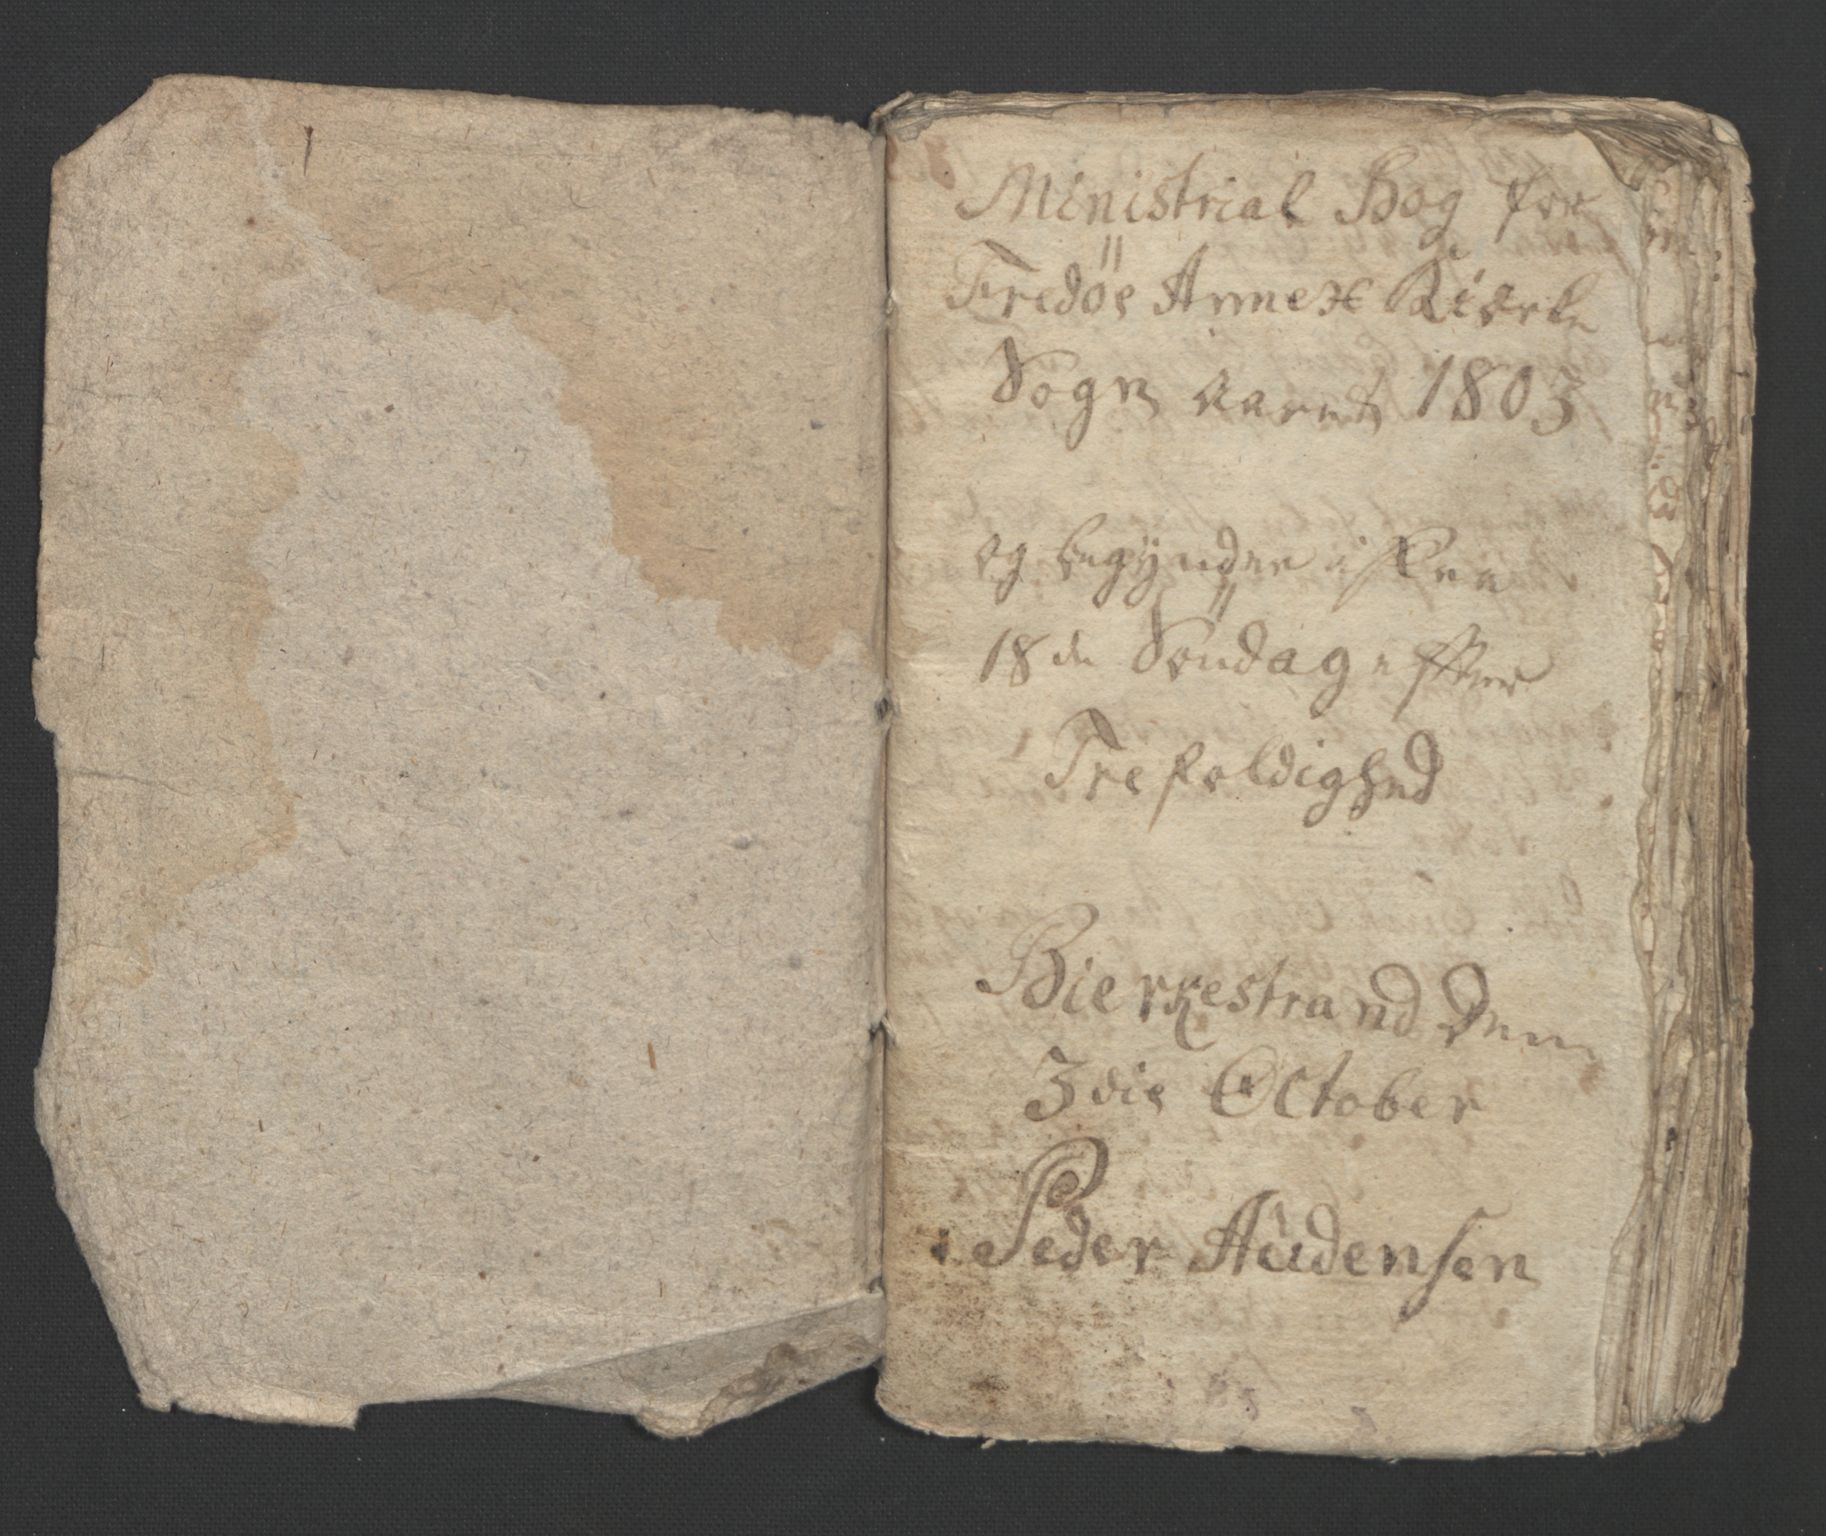 Ministrial Bog for
Fredøe Annex Kierke
Sogn aaret 1803
og begÿnder
18de Søndag efter
Trefoldighed
Bierkestrand den
3die October
Peder Audensen